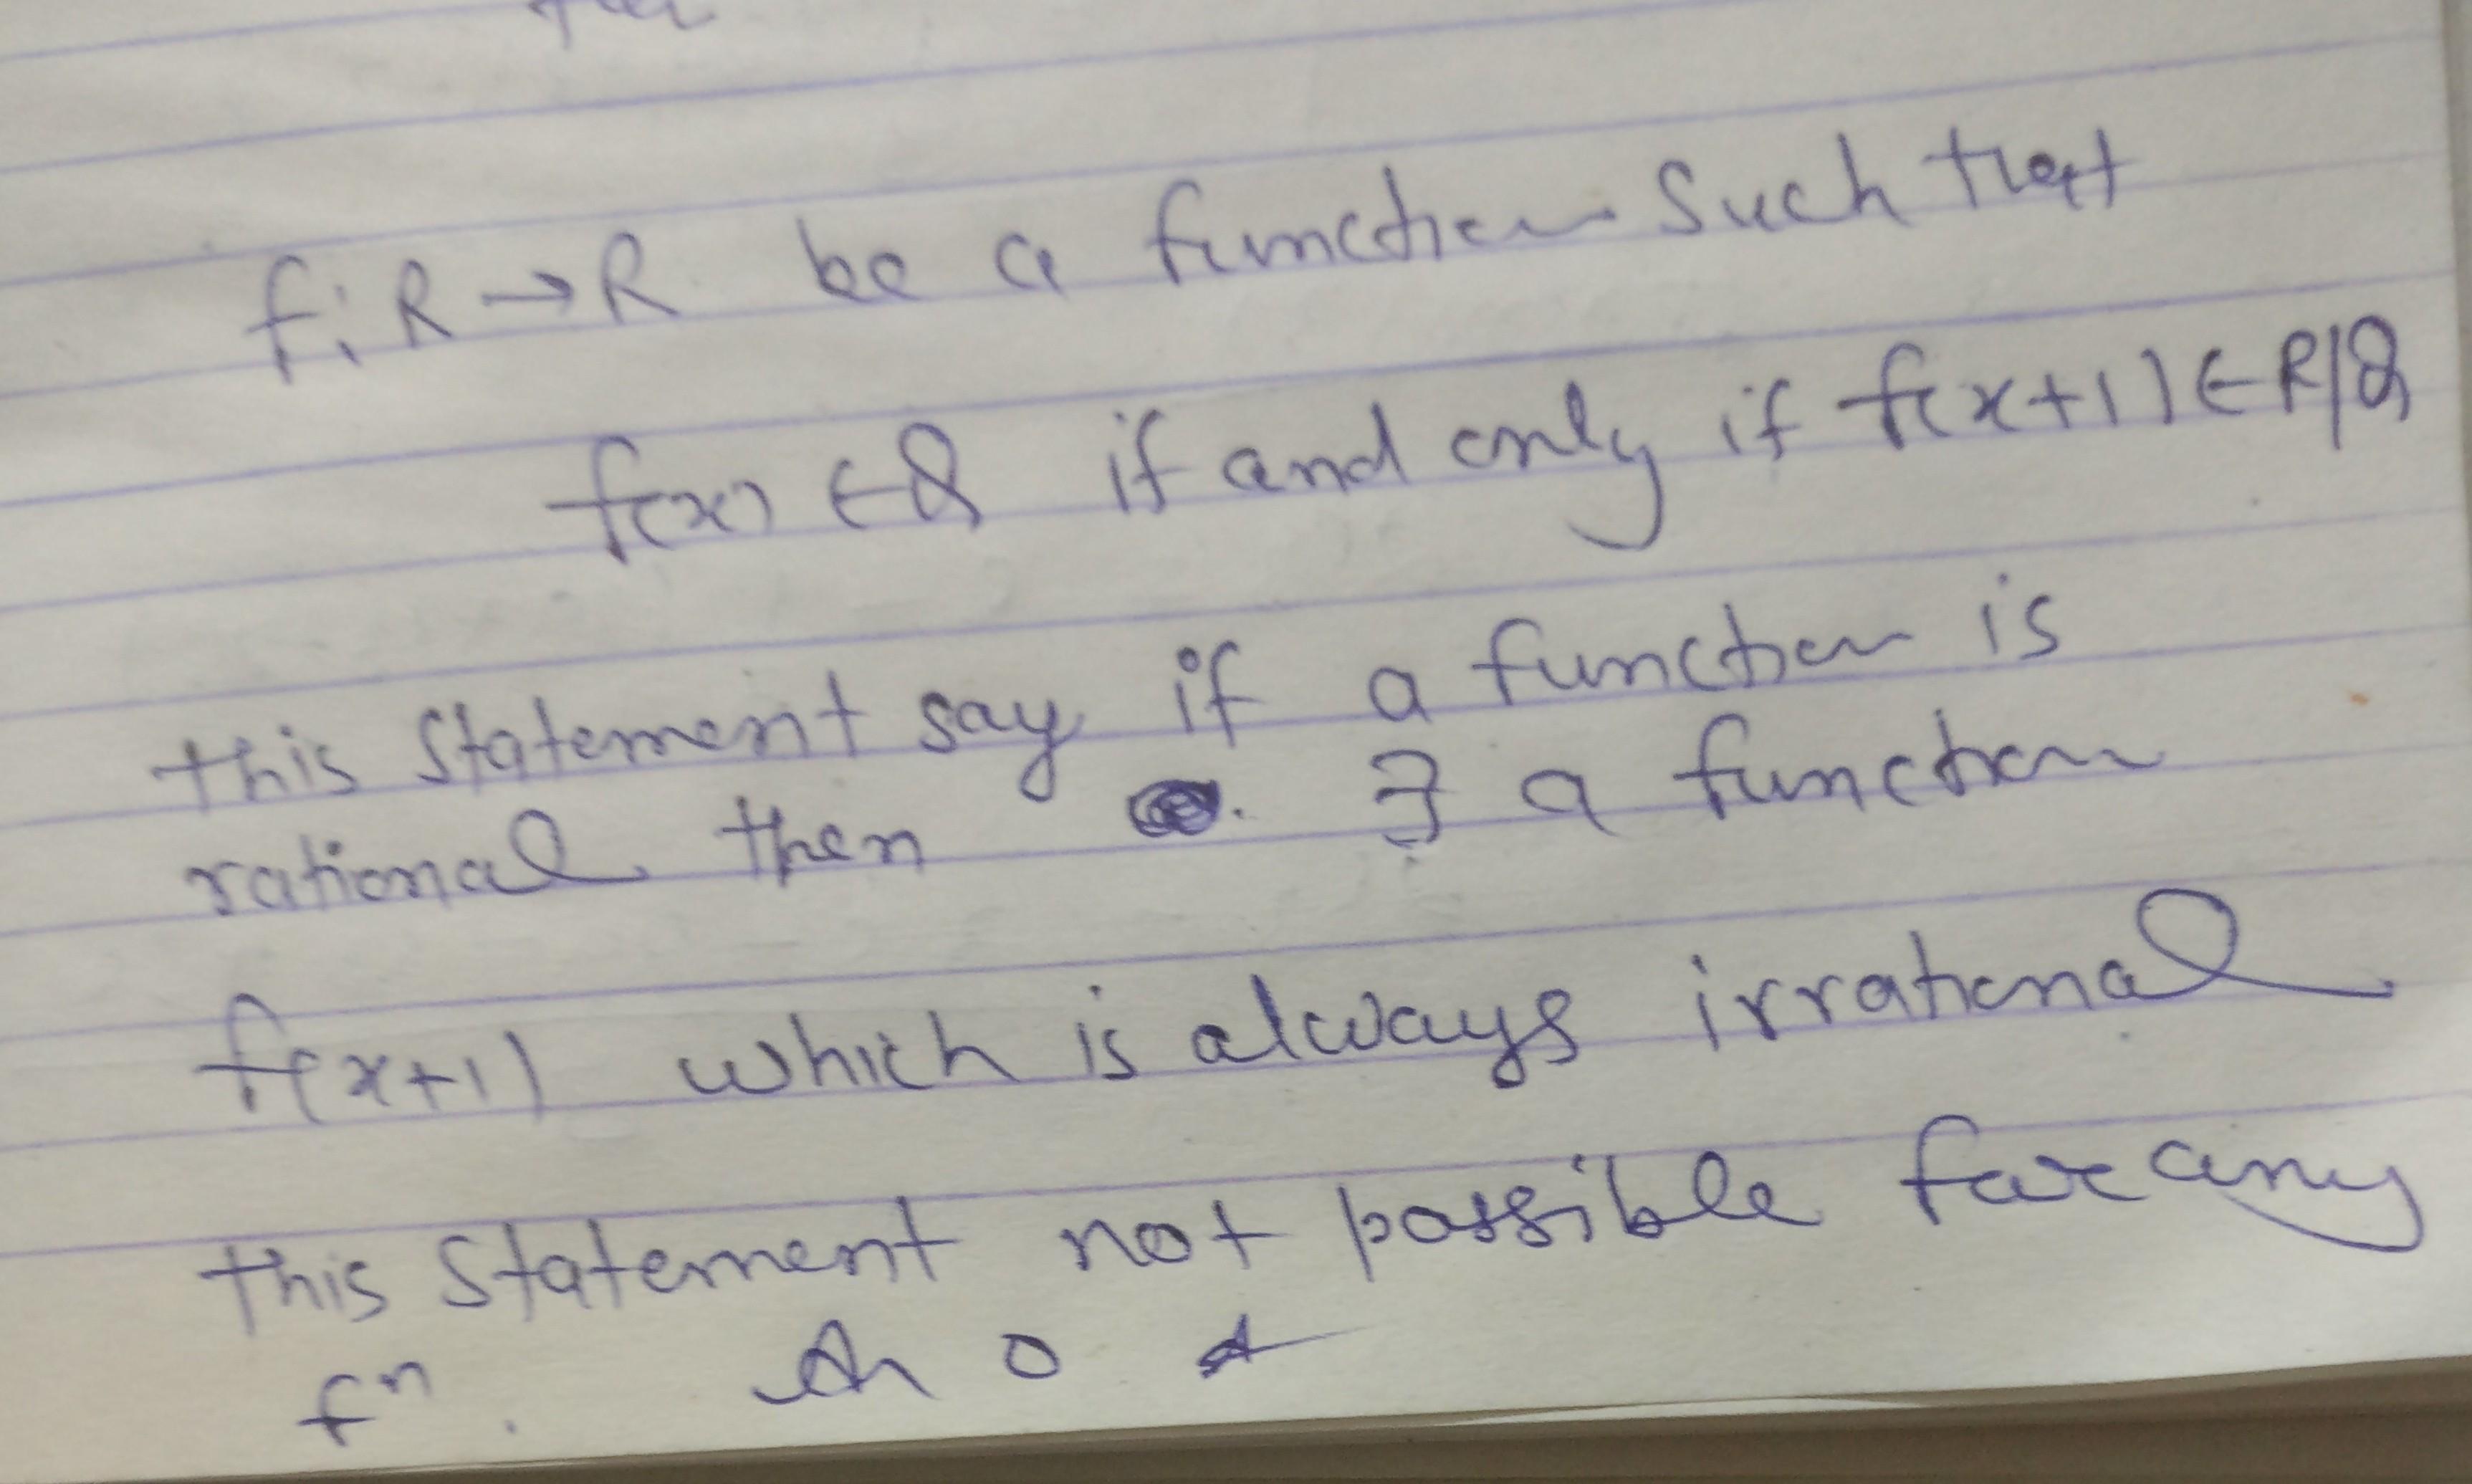 f: R → R be a function such that
f(x) ∈ Q if and only if f(x+1) ∈ R|Q
this statement say if a function is
rational then ∃ a function
f(x+1) which is always irrational
this statement not possible for any
fⁿ.